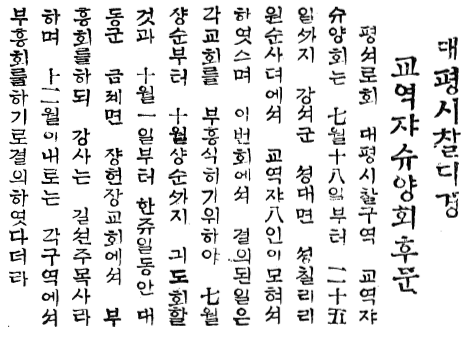 대평시찰디경
교역쟈슈양회후문
평셔로회 대평시찰구역 교역쟈
슈양회는 七월十八일부터 二十五
일ᄭᅡ지 강셔군 셩대면 셩칠리리
원순사뎌에셔 교역쟈八인이모혀셔
하엿스며 이번회에셔 결의된일은
각교회를 부흥식히기위하야 七월
샹순부터 十월샹순ᄭᅡ지 긔도회할
것과 十월一일부터 한쥬일동안 대
동군 금졔면 쟝현장교회에셔 부
흥회를하되 강사는 길션주목사라
하며 十二월이내로는 각구역에셔
부흥회를하기로결의하엿다더라